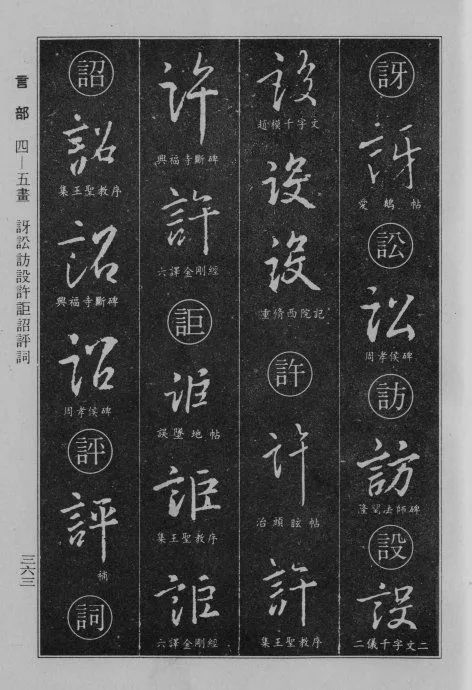 訝
訝
愛鵝帖
訟
訟
周孝侯碑
訪
訪
隆闡法師碑
設
設
二儀千字文二
設
趙模千字文
設
設
重脩西院記
許
許
治頭眩帖
許
集王聖教序
許
興福寺斷碑
許
六譯金剛經
詎
詎
誤墜地帖
詎
集王聖教序
詎
六譯金剛經
詔
詔
集王聖教序
詔
興福寺斷碑
詔
周孝侯碑
評
評
補
詞
言部 四—五畫 訝訟訪設許詎詔評詞
三六三